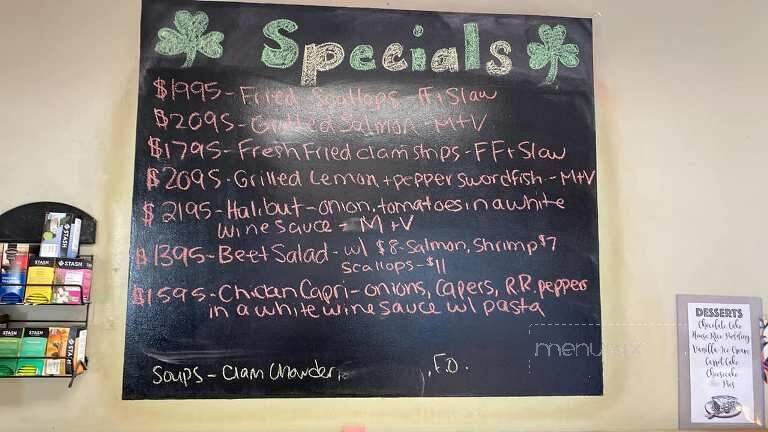 Specials
$1995- Fried Scallops FF+Slaw
$2095- Grilled Salmon - M+V
$1795- Fresh Fried clam strips - FF+Slaw
$2095- Grilled Lemon + pepper swordfish - M+V
$2195- Halibut - onion, tomatoes in a white
wine sauce - M+V
$1395- Beet Salad - w/ $8-Salmon, Shrimp $7
scallops - $11
$1595- Chicken Capri - onions, capers, R.R. peppers
in a white wine sauce w/ pasta
Soups - Clam Chowder, F.O.
STASH
STASH
STASH
STASH
DESSERTS
Chocolate Cake
House Rice Pudding
Vanilla Ice Cream
Carrot Cake
Cheesecake
Pies
menu